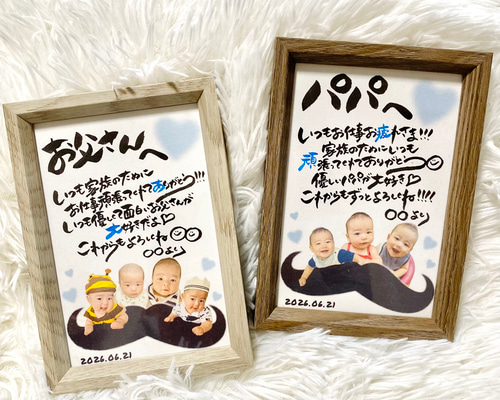 お父さんへ
いつも家族のために
お仕事頑張ってくれてありがとう!!!
いつも優しくて面白いお父さんが
大好きだよ♡
これからもよろしくね
〇〇より
2026.06.21
パパへ
いつもお仕事お疲れさま!!!
家族のためにいつも
頑張ってくれてありがとう
優しいパパが大好き♡
これからもずっとよろしくね!!!!
〇〇より
2026.06.21